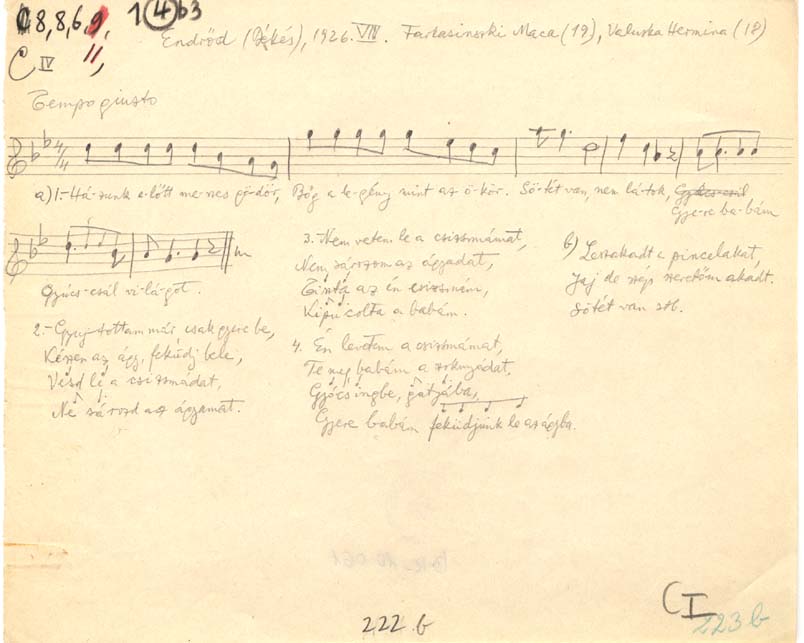 8,8,6,9, 1 4 b3
11,
C IV
Endrőd (Békés), 1926. VIII. Farkasinszki Maca (19), Valuska Hermina (18)
Tempo giusto
4/4
a) 1.- Há-zunk e-lőtt me-szes gö-dör, Bőg a le-gény mint az ö-kör. Sö-tét van, nem lá-tok, Gyere ba-bám
Gyúcs-csál vi-lá-got.
2.- Gyuj-tottam már csak gyere be,
Készen az ágy, feküdj bele,
Vesd le a csizsmádat,
Ne zározd az ágyamat.
3. Nem vetem le a csizsmámat,
Nem zárszom az ágyadat,
Tiszta az én csizsmám,
Kipucolta a babám.
4. Én levetem a csizsmámat,
Te meg babám a szoknyádat,
Gyócsingbe, gatyába,
Gyere babám feküdjünk le az ágyba.
b) Leszakadt a pincelakat,
Jaj de szép szeretőm akadt.
Sötét van stb.
222 b
C I
223 b